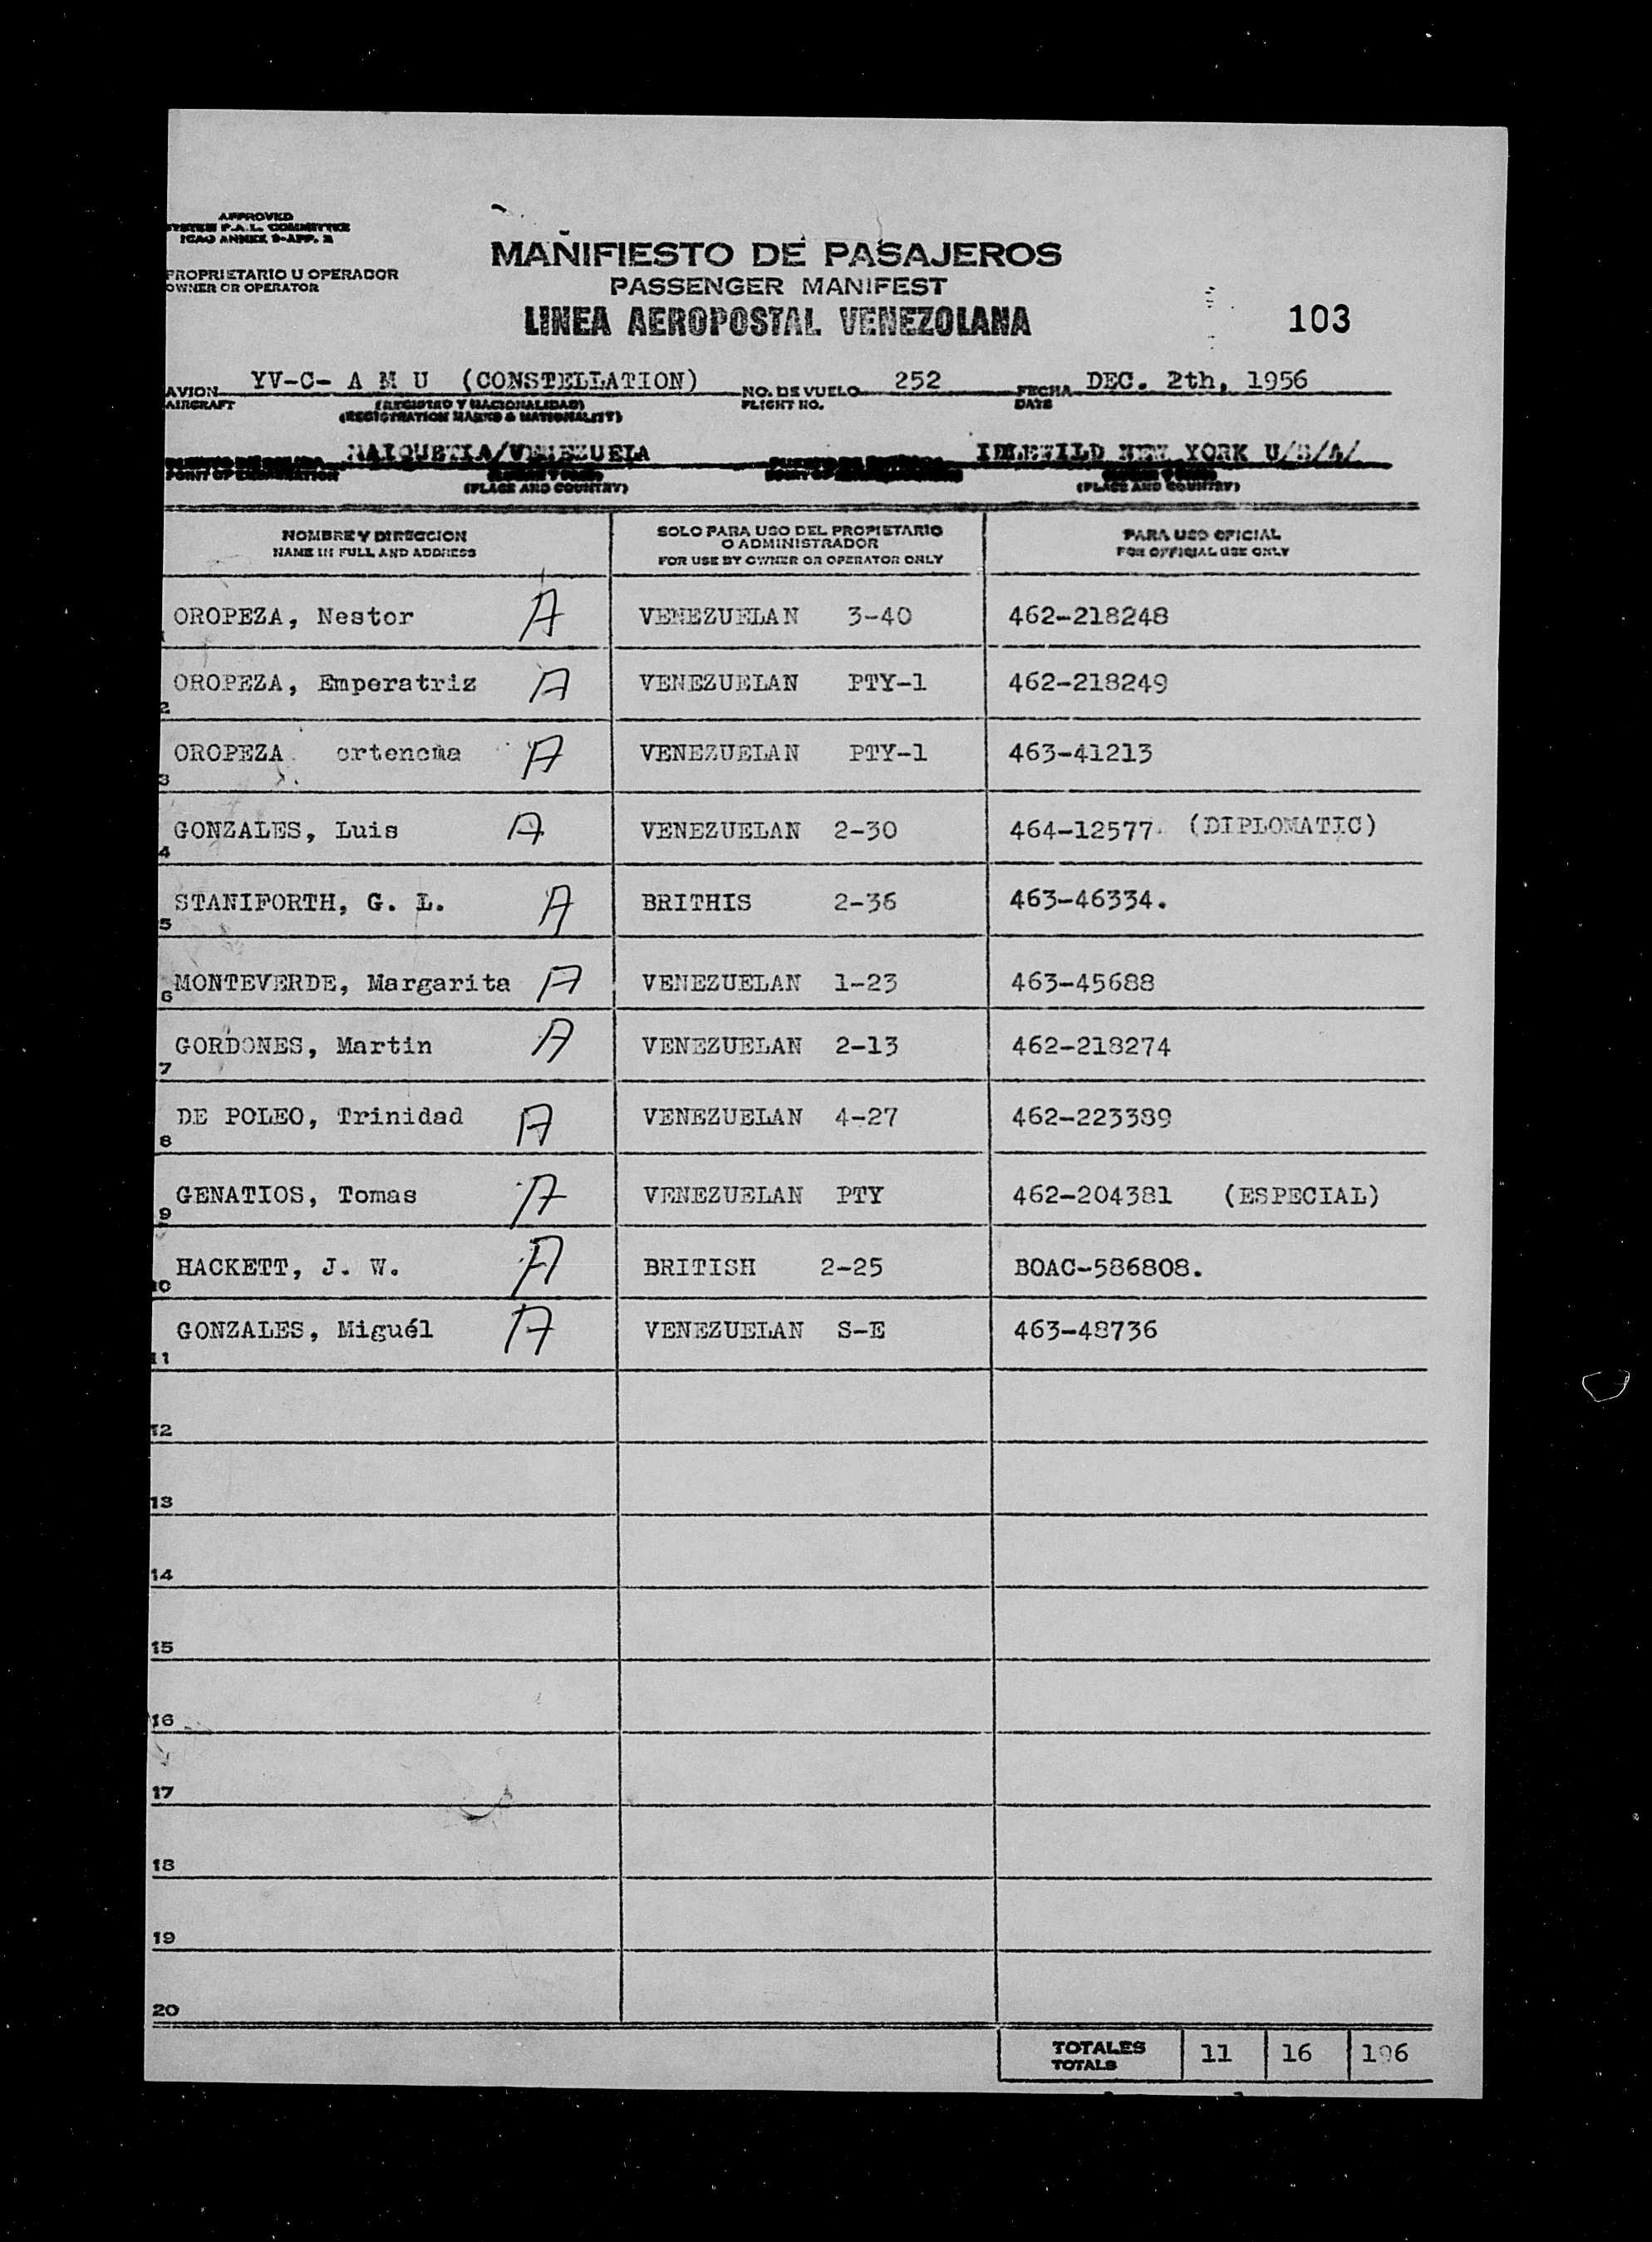 APPROVED
SYSTEM F.A.L. COMMITTEE
ICAO ANNEX 9-APP. 2
PROPRIETARIO U OPERADOR
OWNER OR OPERATOR
MANIFIESTO DE PASAJEROS
PASSENGER MANIFEST
LINEA AEROPOSTAL VENEZOLANA
103
AVION YV-C- A M U (CONSTELLATION) NO. DE VUELO 252 FECHA DEC. 2th, 1956
AIRCRAFT (REGISTRO Y NACIONALIDAD) FLIGHT NO. DATE
(REGISTRATION MARKS & NATIONALITY)
MAIQUETIA/VENEZUELA IDLEWILD NEW YORK U/S/A/
POINT OF
(PLACE AND COUNTRY) (PLACE AND COUNTRY)
NOMBRE Y DIRECCION
NAME IN FULL AND ADDRESS
SOLO PARA USO DEL PROPIETARIO
O ADMINISTRADOR
FOR USE BY OWNER OR OPERATOR ONLY
PARA USO OFICIAL
FOR OFFICIAL USE ONLY
1 OROPEZA, Nestor A VENEZUELAN 3-40 462-218248
2 OROPEZA, Emperatriz A VENEZUELAN PTY-1 462-218249
3 OROPEZA A VENEZUELAN PTY-1 463-41213
4 GONZALES, Luis A VENEZUELAN 2-30 464-12577 (DIPLOMATIC)
5 STANIFORTH, G. L. A BRITHIS 2-36 463-46334.
6 MONTEVERDE, Margarita A VENEZUELAN 1-23 463-45688
7 GORDONES, Martin A VENEZUELAN 2-13 462-218274
8 DE POLEO, Trinidad A VENEZUELAN 4-27 462-223389
9 GENATIOS, Tomas A VENEZUELAN PTY 462-204381 (ESPECIAL)
10 HACKETT, J. W. A BRITISH 2-25 BOAC-586808.
11 GONZALES, Miguél A VENEZUELAN S-E 463-48736
12
13
14
15
16
17
18
19
20
TOTALES 11 16 196
TOTALS